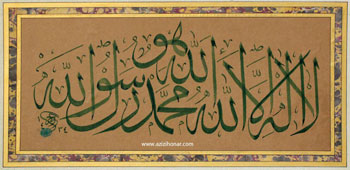 هو
لا اله الا الله محمد رسول الله
www.azizihonar.com